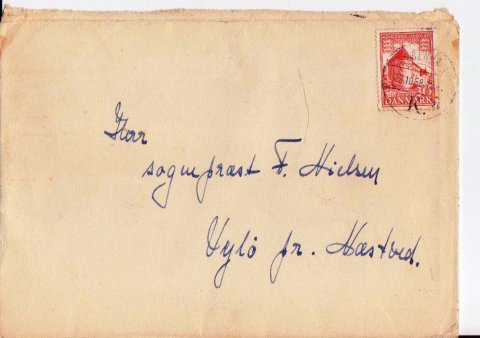 DANMARK
25.10.58
K.
Herr
sognepræst F. Nielsen
Vylö pr. Næstved.